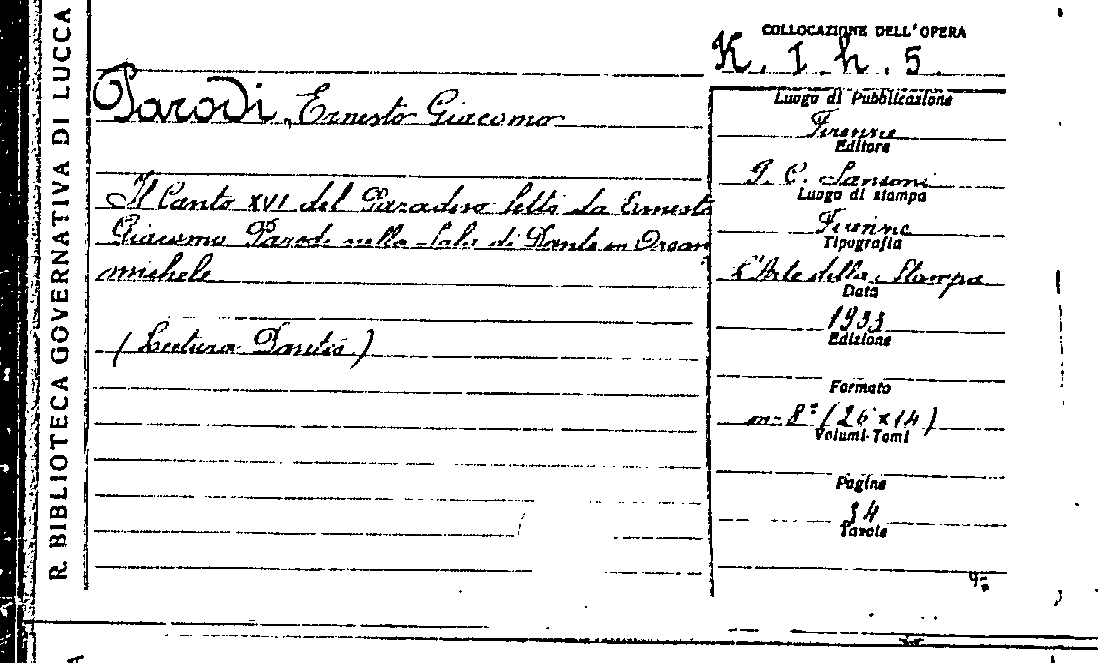 R. BIBLIOTECA GOVERNATIVA DI LUCCA
COLLOCAZIONE DELL'OPERA
K. I h. 5.
Parodi, Ernesto Giacomo
Il Canto XVI del Paradiso letto da Ernesto
Giacomo Parodi nella Sala di Dante in Orsan
michele
(Lectura Dantis)
Luogo di Pubblicazione
Firenze
Editore
G. C. Sansoni
Luogo di stampa
Firenze
Tipografia
L'Arte della Stampa
Data
1933
Edizione
Formato
in-8° (26 x 14)
Volumi-Tomi
Pagine
34
Tavole